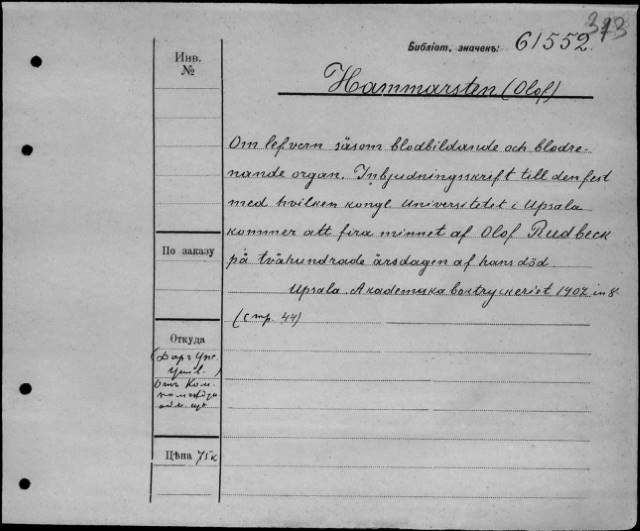 313
Библіот. значекъ: 61552.
Инв.
№
Hammarsten (Olof)
Om lefvern såsom blodbildande och blodre-
nande organ. Inbjudningsskrift till den fest
med hvilken kongl Universitetet i Upsala
kommer att fira minnet af Olof Rudbeck
på tvåhundrade årsdagen af hans död
Upsala. Akademiska boktryckeriet 1902 in 8.
(стр. 44)
По заказу
Откуда
(Даръ Унс.
Унив.)
отъ Ком.
Цѣна 75 к